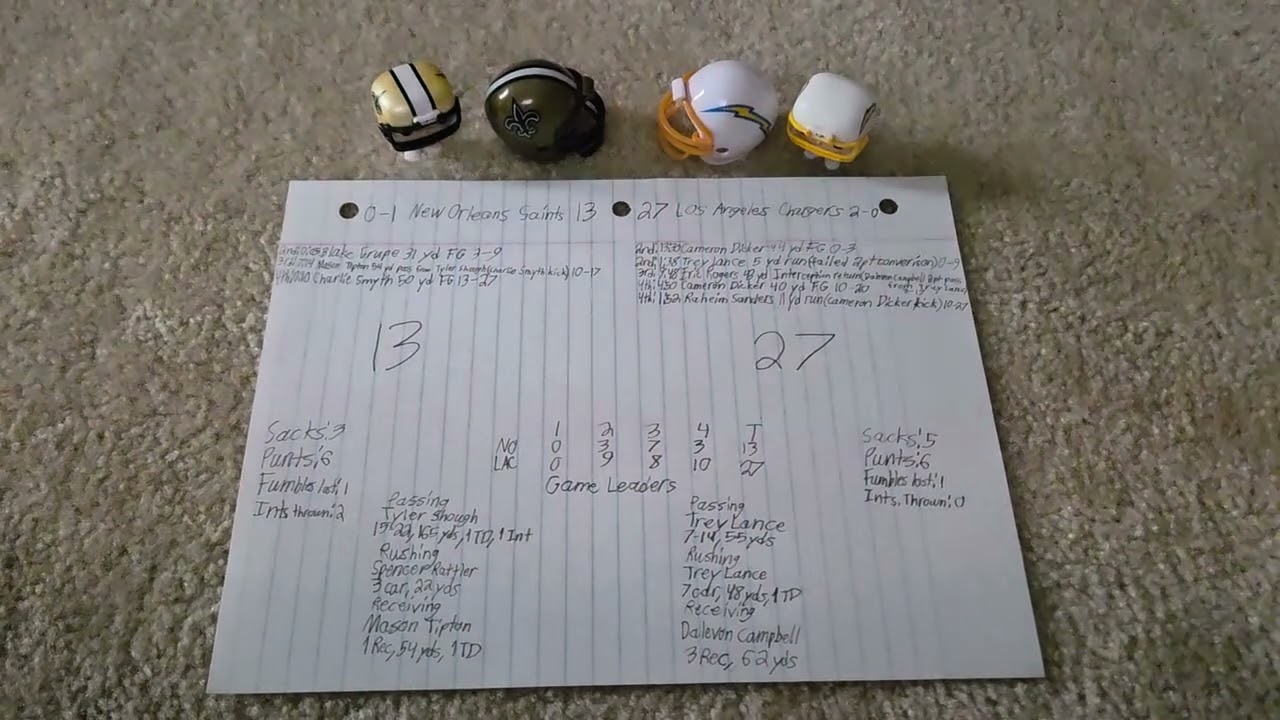 0-1 New Orleans Saints 13
27 Los Angeles Chargers 2-0
Blake Grupe 31 yd FG 3-9
Mason Tipton 54 yd pass from Tyler Shough (Charlie Smyth kick) 10-17
Charlie Smyth 50 yd FG 13-27
2nd: Cameron Dicker 44 yd FG 0-3
2nd: 1:38 Trey Lance 5 yd run (failed 2pt conversion) 0-9
3rd: 9:48 Eric Rogers 48 yd Interception return (Dalevon Campbell 2pt pass
from Trey Lance)
4th: 4:50 Cameron Dicker 40 yd FG 10-20
4th: 1:52 Raheim Sanders 11 yd run (Cameron Dicker kick) 10-27
13
27
Sacks: 3
Punts: 6
Fumbles lost: 1
Ints thrown: 2
1 2 3 4 T
NO 0 3 7 3 13
LAC 0 9 8 10 27
Game Leaders
Sacks: 5
Punts: 6
Fumbles lost: 1
Ints. Thrown: 0
Passing
Tyler Shough
15-22, 165 yds, 1 TD, 1 Int
Rushing
Spencer Rattler
3 car, 22 yds
Receiving
Mason Tipton
1 Rec, 54 yds, 1 TD
Passing
Trey Lance
7-14, 55 yds
Rushing
Trey Lance
7 car, 48 yds, 1 TD
Receiving
Dalevon Campbell
3 Rec, 62 yds